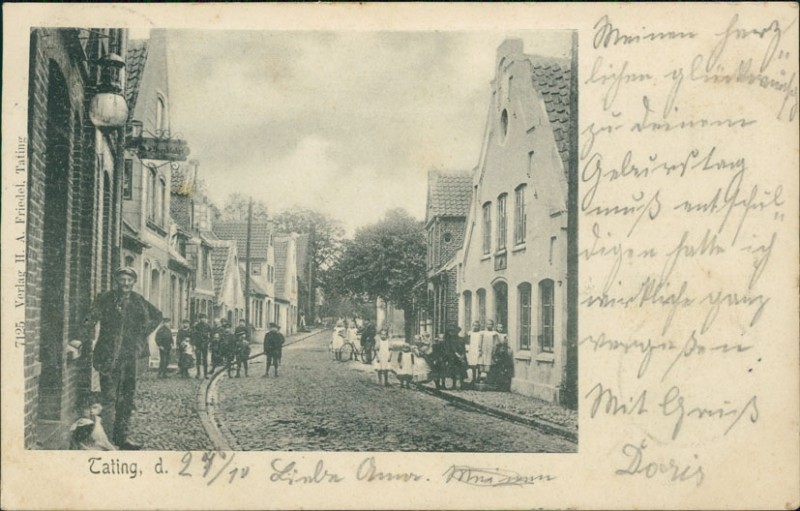 7125 Verlag H. A. Friedel, Tating
Tating, d. 27/10 Liebe Anna. Meinen
Meinen herz„
lichen glückwunsch
zu deinem
Geburstag
muß entschul„
digen hatte ich
wirkliche ganz
vergeßen.
Mit Gruß
Doris